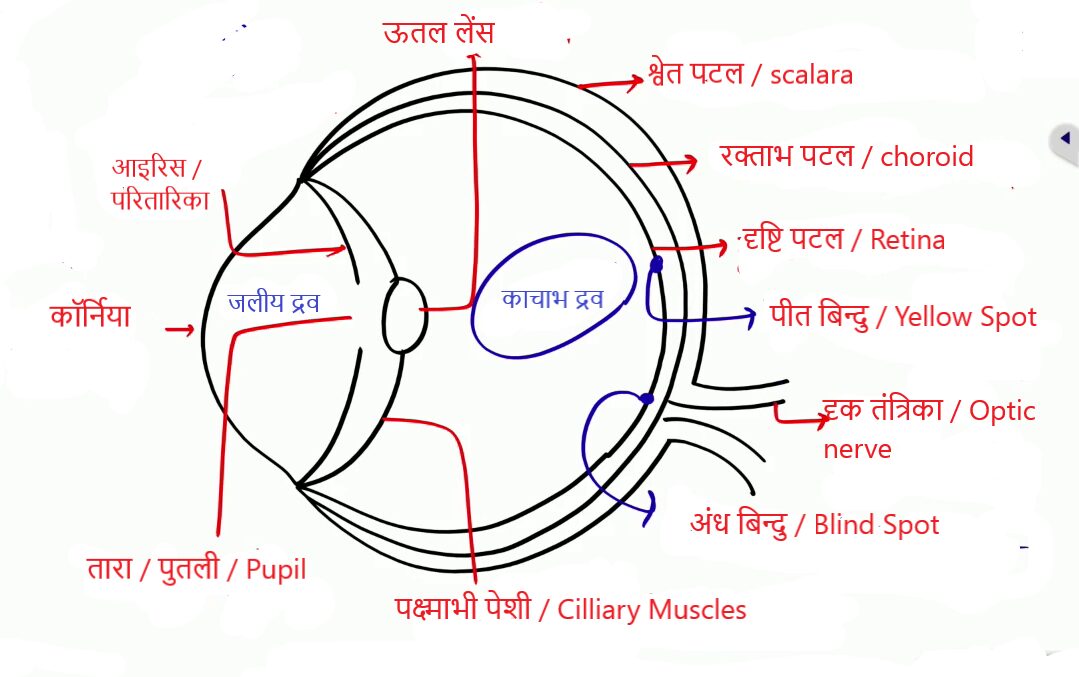 ऊतल लेंस
श्वेत पटल / scalara
रक्ताभ पटल / choroid
आइरिस /
परितारिका
दृष्टि पटल / Retina
जलीय द्रव
काचाभ द्रव
कॉर्निया
पीत बिन्दु / Yellow Spot
दृक तंत्रिका / Optic
nerve
अंध बिन्दु / Blind Spot
तारा / पुतली / Pupil
पक्ष्माभी पेशी / Cilliary Muscles